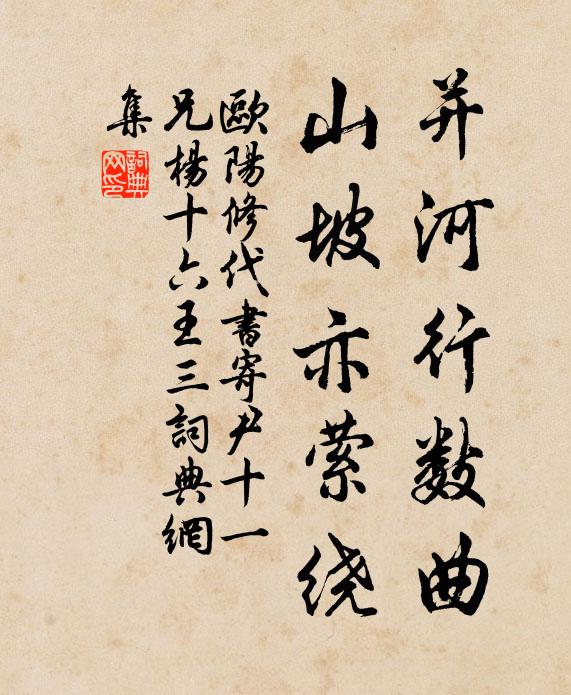 并河行数曲
山坡亦萦绕
歐陽修代書寄尹十一
兄楊十六王三詞典網
集
詞典
网印